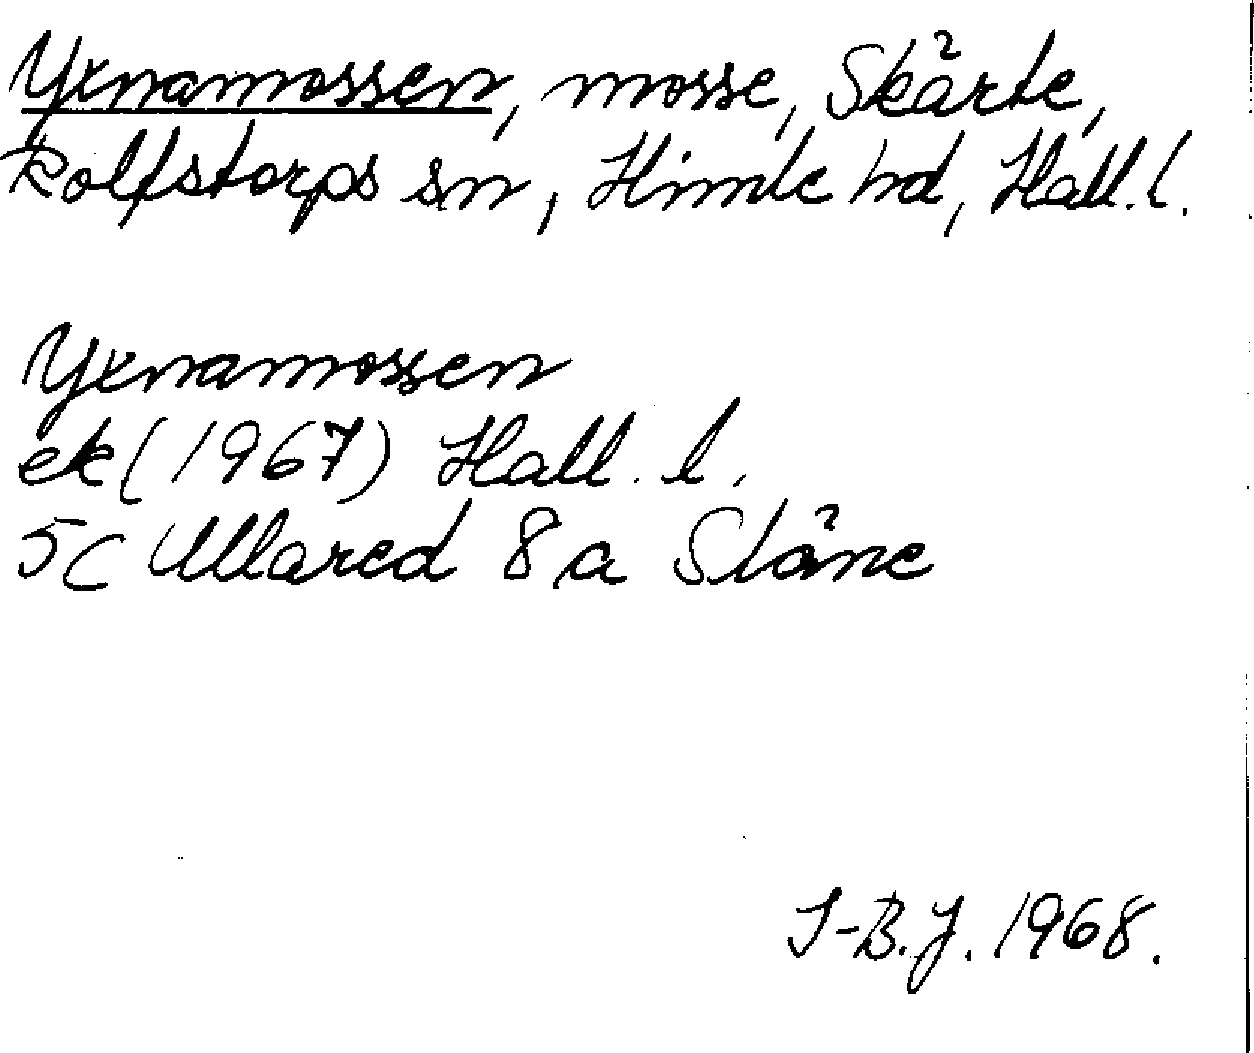 Yxnamossen, mosse, Skårte,
Rolfstorps sn, Himle hd, Hall. l.
Yxnamossen
ek (1967) Hall. l.
5C Ullared 8 a Slåne
I-B.J. 1968.